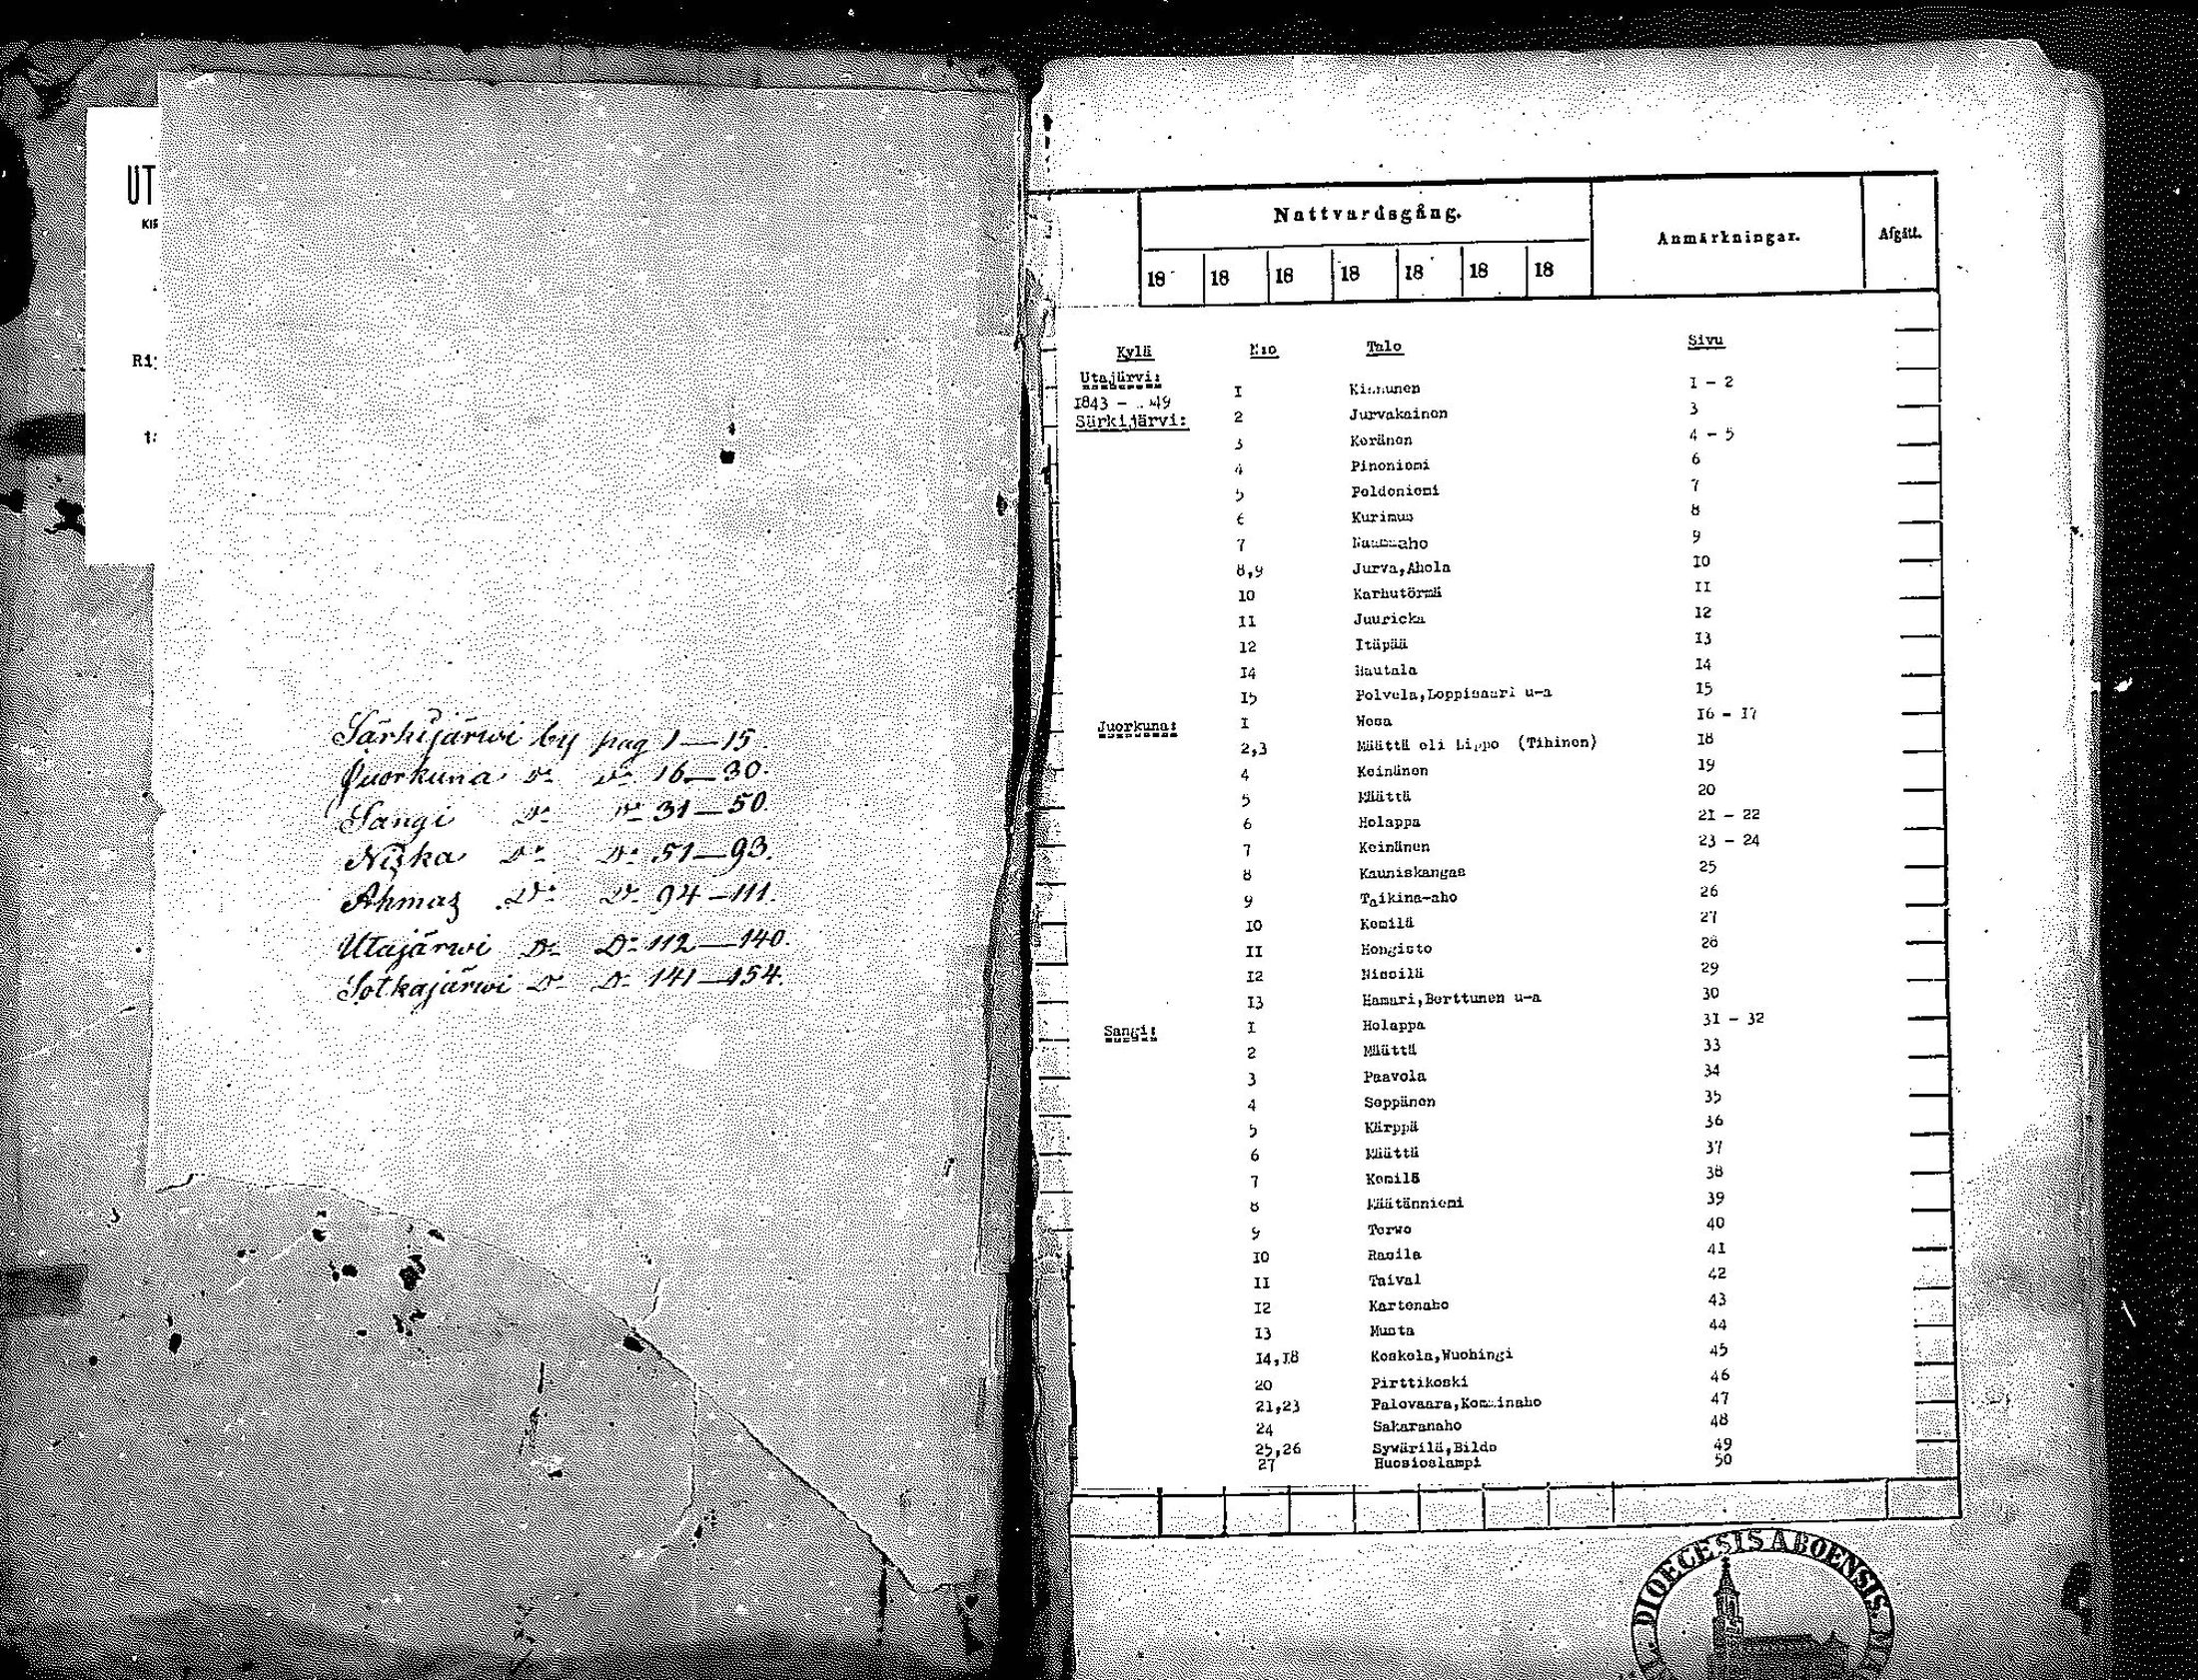 UT
KIR
Ri
Särkijärwi by pag 1—15.
Juorkuna Do Do 16—30.
Sangi Do Do 31—50.
Niska Do Do 51—93.
Ahmas Do Do 94—111.
Utajärwi Do Do 112—140.
Sotkajärwi Do Do 141—154.
Nattvardsgång.
Anmärkningar.
Afgått.
18 18 18 18 18 18 18
Kylä N:o Talo Sivu
Utajärvi:
1843 - 49
Särkijärvi:
I Kinnunen I - 2
2 Jurvakainen 3
3 Keränen 4 - 5
4 Pinoniemi 6
5 Poldoniemi 7
6 Kurimus 8
7 9
8,9 Jurva,Ahola IO
IO Karhutörmä II
II Juuricka I2
I2 Itäpää I3
I4 Rautala I4
I5 Polvela,Loppisaari u-a I5
Juorkuna:
I Wesa I6 - I7
2,3 Määttä eli Lippo (Tihinen) I8
4 Keinänen I9
5 Määttä 20
6 Holappa 2I - 22
7 Keinänen 23 - 24
8 Kauniskangas 25
9 Taikina-aho 26
IO Kemilä 27
II Hongisto 28
I2 Nissilä 29
I3 Hamari,Berttunen u-a 30
Sangi:
I Holappa 31 - 32
2 Määttä 33
3 Paavola 34
4 Seppänen 35
5 Kärppä 36
6 Määttä 37
7 Kemilä 38
8 Määtänniemi 39
9 Terwo 40
IO Rasila 4I
II Taival 42
I2 Kartenaho 43
I3 Musta 44
I4,I8 Koskela,Wuohingi 45
20 Pirttikoski 46
2I,23 Palovaara,Kominaho 47
24 Sakaranaho 48
25,26 Sywärilä,Bildo 49
27 Huosioslampi 50
DIOECESIS ABOENSIS